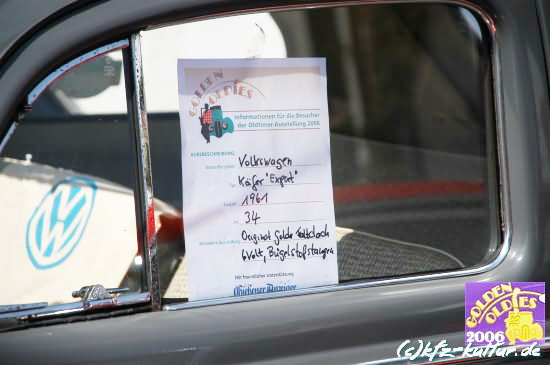 GOLDEN OLDIES
Informationen für die Besucher
der Oldtimer-Ausstellung 2006
KURZBESCHREIBUNG
Volkswagen
Käfer "Export"
1961
PS 34
Original Golde Faltdach
6Volt, Bügelstoßstangen
Mit freundlicher Unterstützung
Gießener Anzeiger
GOLDEN OLDIES
2006
(c)kfz-kultur.de